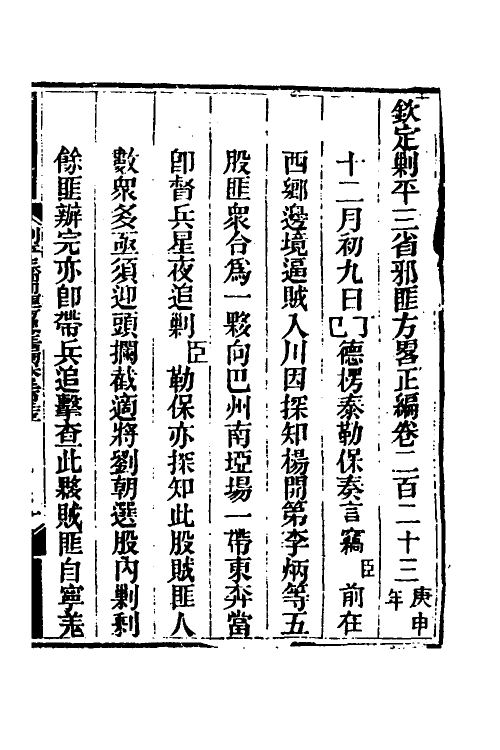 欽定剿平三省邪匪方畧正編卷二百二十三 庚申年
十二月初九日己丑德楞泰勒保奏言竊臣前在
西鄉邊境逼賊入川因探知楊開第李炳等五
股匪衆合爲一夥向巴州南埡場一帶東奔當
卽督兵星夜追剿臣勒保亦探知此股賊匪人
數衆多亟須迎頭攔截適將劉朝選股內剿剩
餘匪辦完亦卽帶兵追擊查此夥賊匪自寧羌